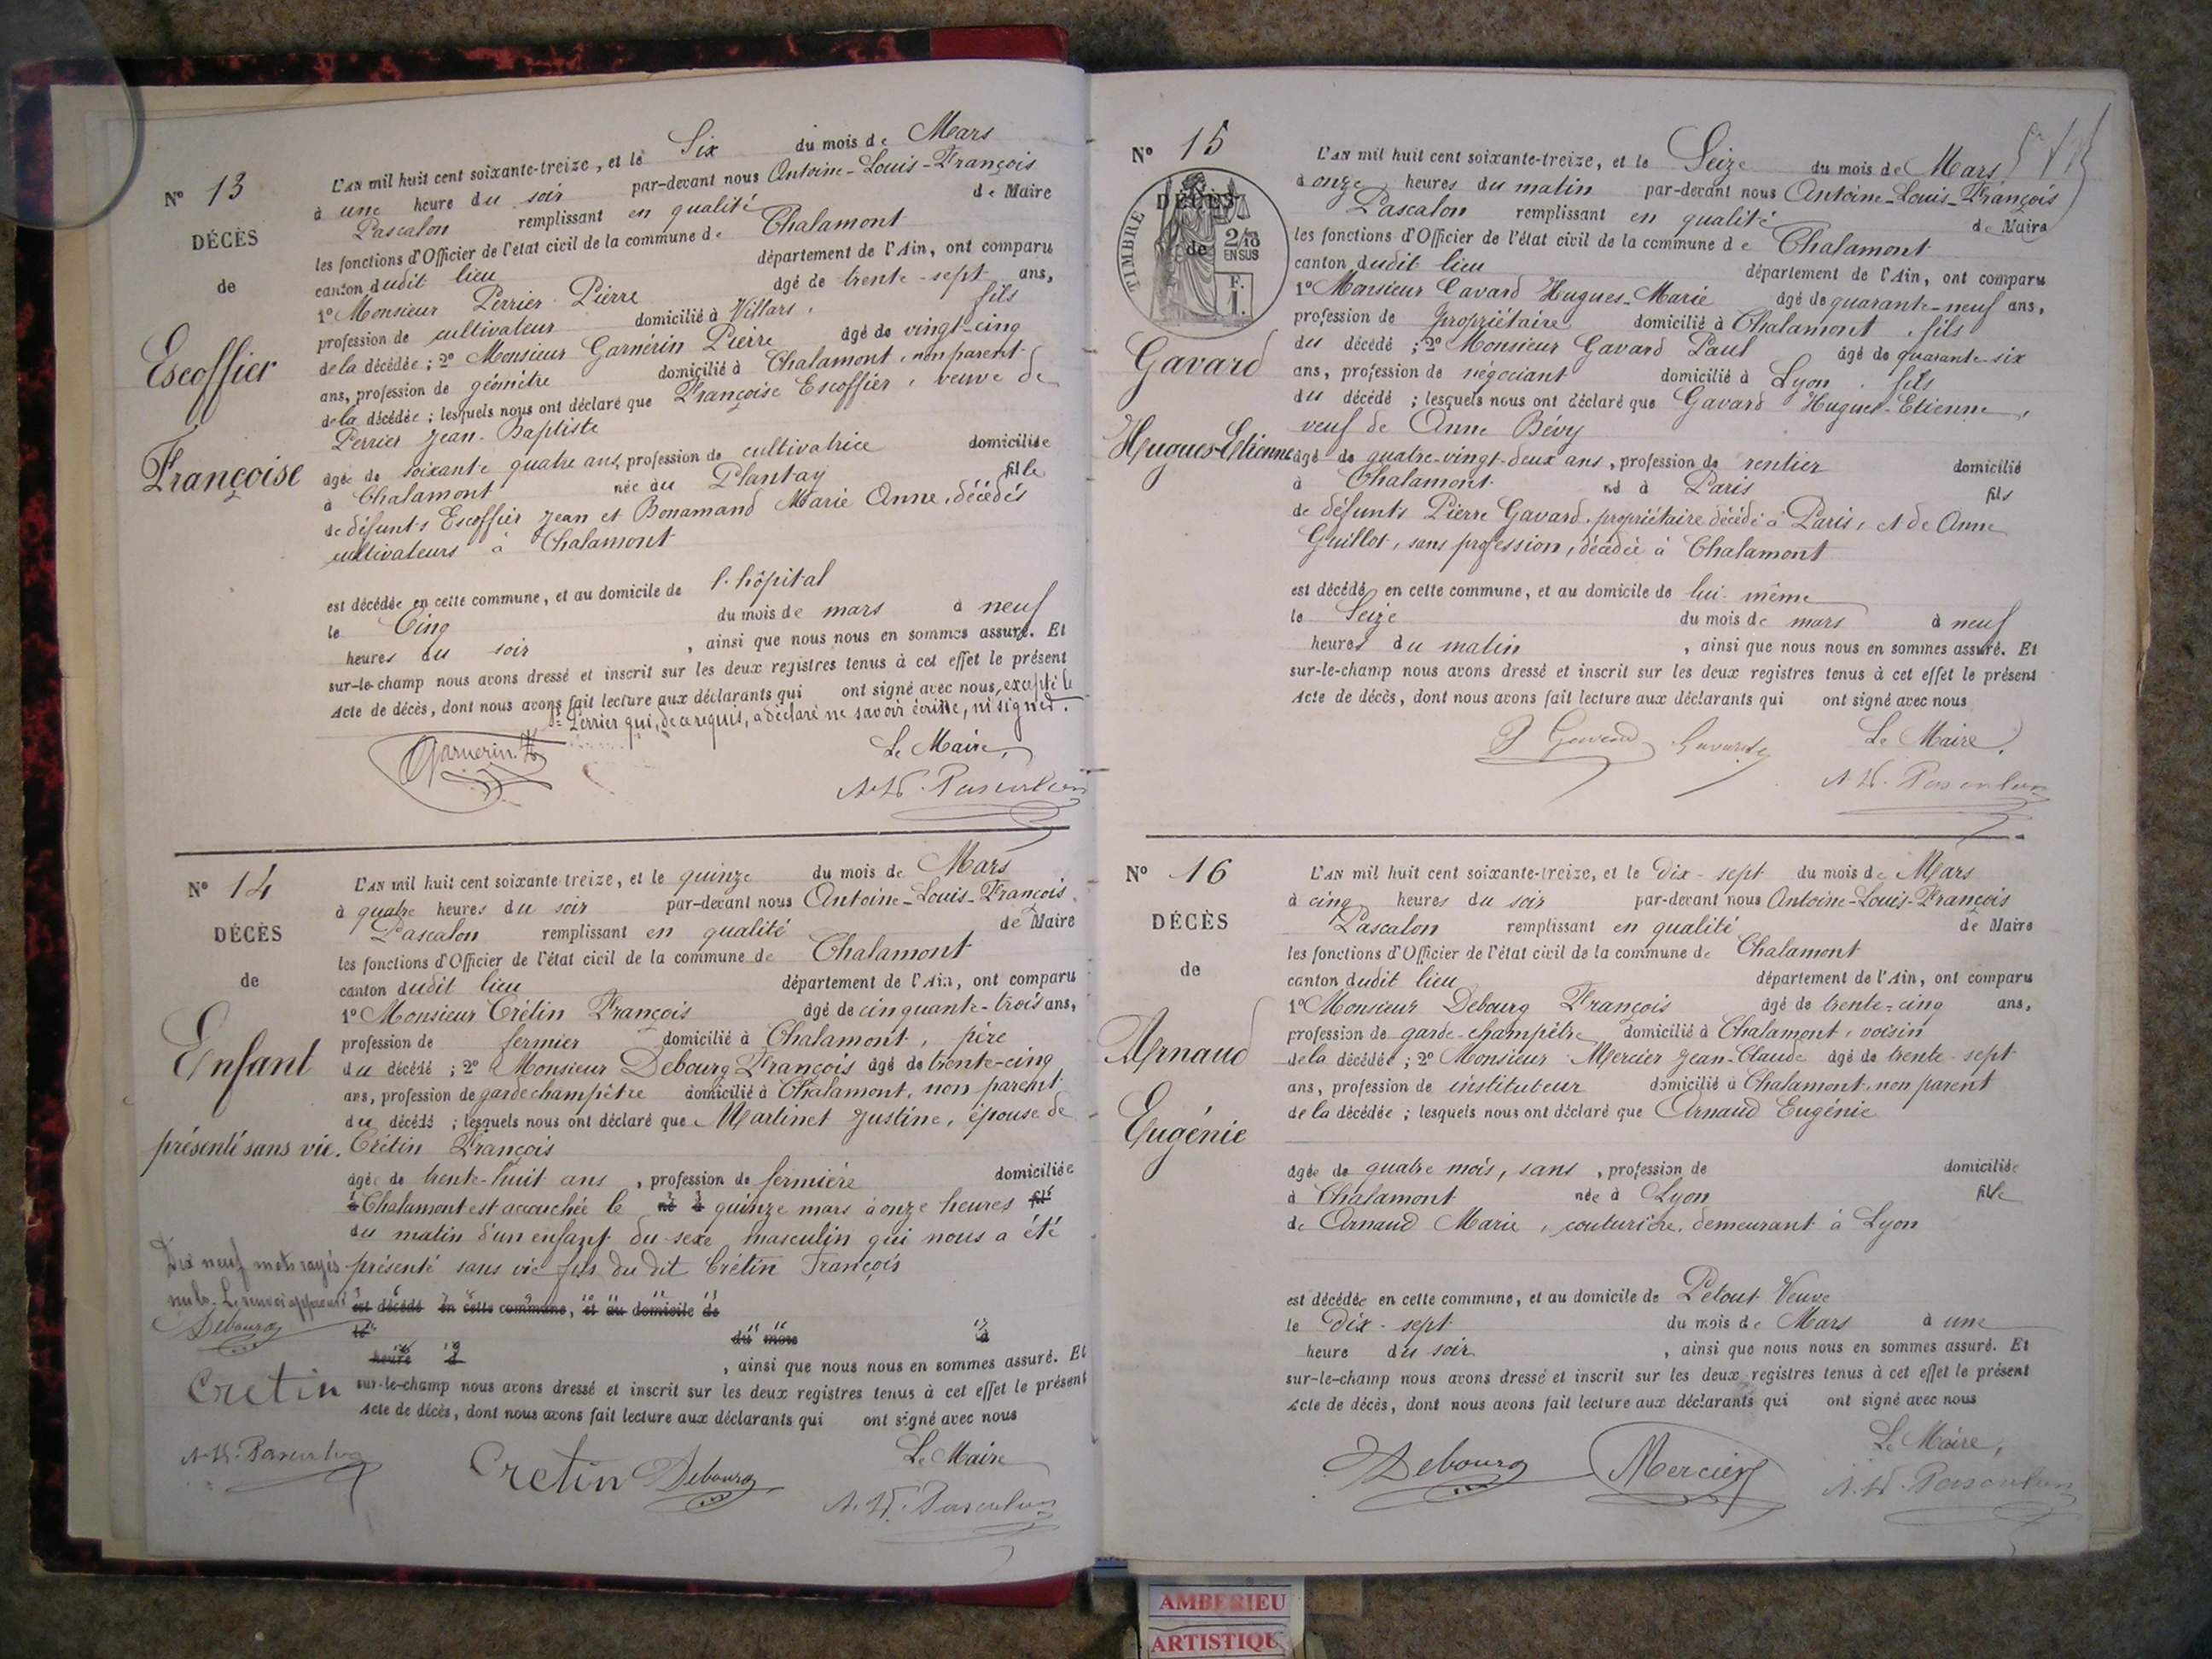 Nº 13
DÉCÈS
de
Escoffier
Françoise
L'AN mil huit cent soixante-treize, et le Six du mois de Mars
à une heure du soir par-devant nous Antoine-Louis-François
Pascalon remplissant en qualité de Maire
les fonctions d'Officier de l'état civil de la commune de Chalamont
canton dudit lieu département de l'Ain, ont comparu
1º Monsieur Perrier Pierre âgé de trente-sept ans,
profession de cultivateur domicilié à Villars, fils
de la décédée ; 2º Monsieur Garnérin Pierre âgé de vingt-cinq
ans, profession de géomètre domicilié à Chalamont, non parent
de la décédée ; lesquels nous ont déclaré que Françoise Escoffier, veuve de
Perrier Jean-Baptiste
âgée de soixante quatre ans, profession de cultivatrice domiciliée
à Chalamont née au Plantay fille
de défunts Escoffier Jean et Bonamand Marie Anne, décédés
cultivateurs à Chalamont
est décédée en cette commune, et au domicile de l'hôpital
le Cinq du mois de mars à neuf
heures du soir, ainsi que nous nous en sommes assuré. Et
sur-le-champ nous avons dressé et inscrit sur les deux registres tenus à cet effet le présent
Acte de décès, dont nous avons fait lecture aux déclarants qui ont signé avec nous, excepté le
Sr Perrier qui, de ce requis, a déclaré ne savoir écrire, ni signer.
Garnerin Le Maire,
A-L-F. Pascalon
Nº 14
DÉCÈS
de
Enfant
présenté sans vie.
L'AN mil huit cent soixante-treize, et le quinze du mois de Mars
à quatre heures du soir par-devant nous Antoine-Louis-François
Pascalon remplissant en qualité de Maire
les fonctions d'Officier de l'état civil de la commune de Chalamont
canton dudit lieu département de l'Ain, ont comparu
1º Monsieur Crétin François âgé de cinquante-trois ans,
profession de fermier domicilié à Chalamont, père
du décédé ; 2º Monsieur Debourg François âgé de trente-cinq
ans, profession de garde champêtre domicilié à Chalamont, non parent
du décédé ; lesquels nous ont déclaré que Martinet Justine, épouse de
Crétin François
âgée de trente-huit ans, profession de fermière domiciliée
à Chalamont est accouchée le né à quinze mars à onze heures fil
du matin d'un enfant du sexe masculin qui nous a été
présenté sans vie fils du dit Crétin François
est décédé en cette commune, et au domicile de
le du mois à
heure d, ainsi que nous nous en sommes assuré. Et
sur-le-champ nous avons dressé et inscrit sur les deux registres tenus à cet effet le présent
Acte de décès, dont nous avons fait lecture aux déclarants qui ont signé avec nous
Dix neuf mots rayés
nuls. Le renvoi approuvé
Debourg
Cretin
A-L-F. Pascalon
Cretin Debourg Le Maire
A. L. F. Pascalon
Nº 15
DÉCÈS
de
TIMBRE
2/10
EN SUS
F.
1.
Gavard
Hugues-Etienne
L'AN mil huit cent soixante-treize, et le Seize du mois de Mars
à onze heures du matin par-devant nous Antoine-Louis-François
Pascalon remplissant en qualité de Maire
les fonctions d'Officier de l'état civil de la commune de Chalamont
canton dudit lieu département de l'Ain, ont comparu
1º Monsieur Gavard Hugues-Marie âgé de quarante-neuf ans,
profession de propriétaire domicilié à Chalamont, fils
du décédé ; 2º Monsieur Gavard Paul âgé de quarante-six
ans, profession de négociant domicilié à Lyon, fils
du décédé ; lesquels nous ont déclaré que Gavard Hugues-Etienne,
veuf de Anne Bévy
âgé de quatre-vingt-deux ans, profession de rentier domicilié
à Chalamont né à Paris fils
de défunts Pierre Gavard, propriétaire décédé à Paris, et de Anne
Guillot, sans profession, décédée à Chalamont
est décédé en cette commune, et au domicile de lui-même
le Seize du mois de mars à neuf
heures du matin, ainsi que nous nous en sommes assuré. Et
sur-le-champ nous avons dressé et inscrit sur les deux registres tenus à cet effet le présent
Acte de décès, dont nous avons fait lecture aux déclarants qui ont signé avec nous
P Gavard Gavard Le Maire,
A. L. F. Pascalon
Nº 16
DÉCÈS
de
Arnaud
Eugénie
L'AN mil huit cent soixante-treize, et le Dix-sept du mois de Mars
à cinq heures du soir par-devant nous Antoine-Louis-François
Pascalon remplissant en qualité de Maire
les fonctions d'Officier de l'état civil de la commune de Chalamont
canton dudit lieu département de l'Ain, ont comparu
1º Monsieur Debourg François âgé de trente-cinq ans,
profession de garde-champêtre domicilié à Chalamont, voisin
de la décédée ; 2º Monsieur Mercier Jean-Claude âgé de trente-sept
ans, profession de instituteur domicilié à Chalamont, non parent
de la décédée ; lesquels nous ont déclaré que Arnaud Eugénie
âgée de quatre mois, sans, profession de domiciliée
à Chalamont née à Lyon fille
de Arnaud Marie, couturière, demeurant à Lyon
est décédée en cette commune, et au domicile de Pelout Veuve
le dix-sept du mois de Mars à une
heure du soir, ainsi que nous nous en sommes assuré. Et
sur-le-champ nous avons dressé et inscrit sur les deux registres tenus à cet effet le présent
Acte de décès, dont nous avons fait lecture aux déclarants qui ont signé avec nous
Debourg Mercier Le Maire,
A. L. F. Pascalon
AMBERIEU
ARTISTIQU